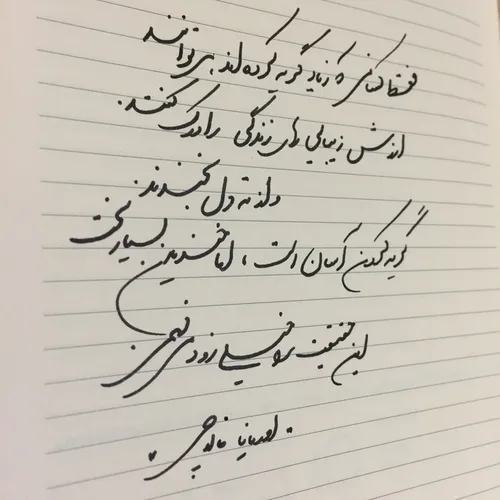 فقط کسانی که زیاد گریه کرده اند، می توانند
ارزش زیبایی های زندگی را درک کنند.
و از ته دل بخندند
گریه کردن آسان است، اما خندیدن بسیار سخت
این حقیقت را خیلی زود می فهمی
اوریانا فالاچی